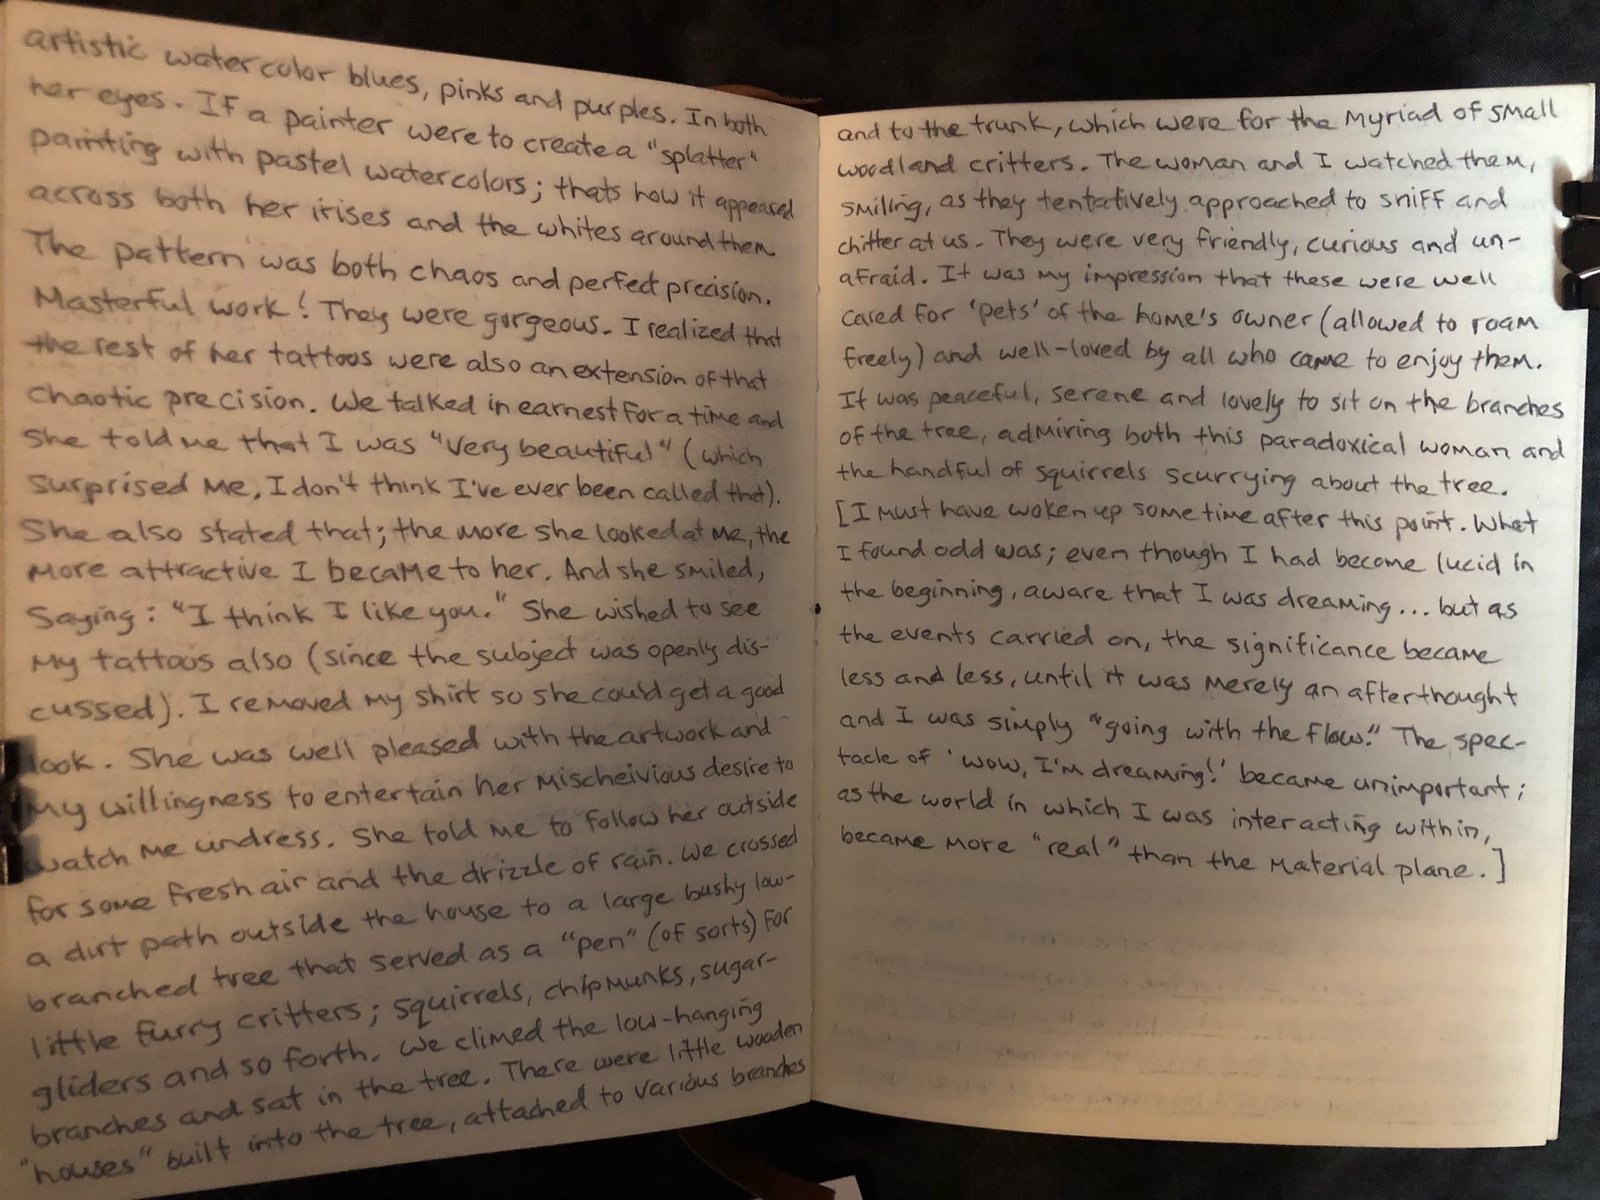 artistic watercolor blues, pinks and purples. In both
her eyes. If a painter were to create a "splatter"
painting with pastel watercolors; thats how it appeared
across both her irises and the whites around them.
The pattern was both chaos and perfect precision.
Masterful work! They were gorgeous. I realized that
the rest of her tattoos were also an extension of that
chaotic precision. We talked in earnest for a time and
she told me that I was "very beautiful" (which
surprised me, I don't think I've ever been called that).
She also stated that; the more she looked at me, the
more attractive I became to her. And she smiled,
saying: "I think I like you." She wished to see
my tattoos also (since the subject was openly dis-
cussed). I removed my shirt so she could get a good
look. She was well pleased with the artwork and
my willingness to entertain her mischeivious desire to
watch me undress. She told me to follow her outside
for some fresh air and the drizzle of rain. We crossed
a dirt path outside the house to a large bushy low-
branched tree that served as a "pen" (of sorts) for
little furry critters; squirrels, chipmunks, sugar-
gliders and so forth. We climed the low-hanging
branches and sat in the tree. There were little wooden
"houses" built into the tree, attached to various branches
and to the trunk, which were for the myriad of small
woodland critters. The woman and I watched them,
smiling, as they tentatively approached to sniff and
chitter at us. They were very friendly, curious and un-
afraid. It was my impression that these were well
cared for 'pets' of the home's owner (allowed to roam
freely) and well-loved by all who came to enjoy them.
It was peaceful, serene and lovely to sit on the branches
of the tree, admiring both this paradoxical woman and
the handful of squirrels scurrying about the tree.
[I must have woken up some time after this point. What
I found odd was; even though I had become lucid in
the beginning, aware that I was dreaming... but as
the events carried on, the significance became
less and less, until it was merely an afterthought
and I was simply "going with the flow." The spec-
tacle of 'wow, I'm dreaming!' became unimportant;
as the world in which I was interacting within,
became more "real" than the material plane.]